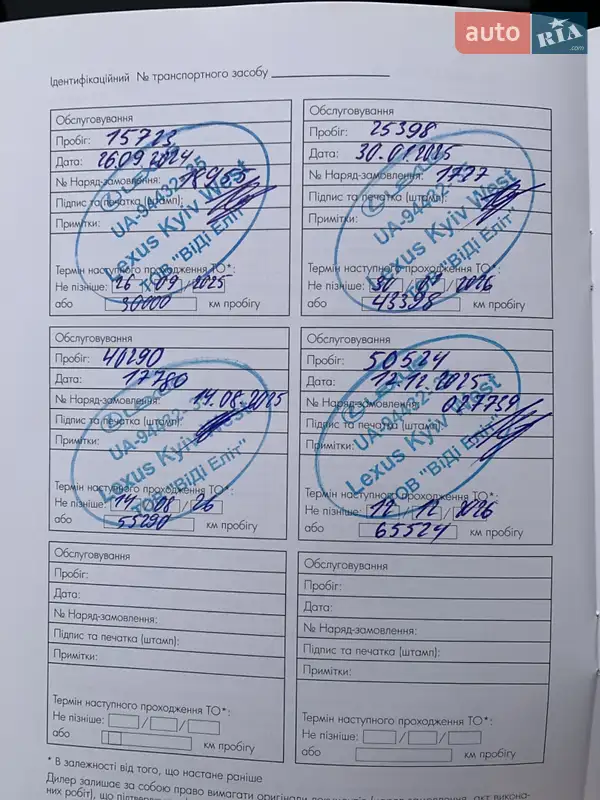 auto RIA .com
Ідентифікаційний № транспортного засобу
Обслуговування
Пробіг: 15723
Дата: 26.09.2024
№ Наряд-замовлення:
Підпис та печатка (штамп):
Примітки:
UA-94432
Lexus Kyiv West
ТОВ "ВіДі Еліт"
Термін наступного проходження ТО*:
Не пізніше: 26 / 09 / 2025
або 30000 км пробігу
Обслуговування
Пробіг: 25398
Дата: 30.01.2025
№ Наряд-замовлення: 1777
Підпис та печатка (штамп):
Примітки:
UA-94432
Lexus Kyiv West
ТОВ "ВіДі Еліт"
Термін наступного проходження ТО*:
Не пізніше: 30 / / 2026
або 43398 км пробігу
Обслуговування
Пробіг: 40290
Дата: 17780
№ Наряд-замовлення: 14.08.2025
Підпис та печатка (штамп):
Примітки:
UA-94432
Lexus Kyiv West
ТОВ "ВіДі Еліт"
Термін наступного проходження ТО*:
Не пізніше: 14 / 08 / 26
або 55290 км пробігу
Обслуговування
Пробіг: 50524
Дата: 12.12.2025
№ Наряд-замовлення: 027739
Підпис та печатка (штамп):
Примітки:
UA-94432
Lexus Kyiv West
ТОВ "ВіДі Еліт"
Термін наступного проходження ТО*:
Не пізніше: 12 / 12 / 2026
або 65524 км пробігу
Обслуговування
Пробіг:
Дата:
№ Наряд-замовлення:
Підпис та печатка (штамп):
Примітки:
Термін наступного проходження ТО*:
Не пізніше: / /
або км пробігу
Обслуговування
Пробіг:
Дата:
№ Наряд-замовлення:
Підпис та печатка (штамп):
Примітки:
Термін наступного проходження ТО*:
Не пізніше: / /
або км пробігу
* В залежності від того, що настане раніше
Дилер залишає за собою право вимагати оригінали акт викона-
них робіт), що